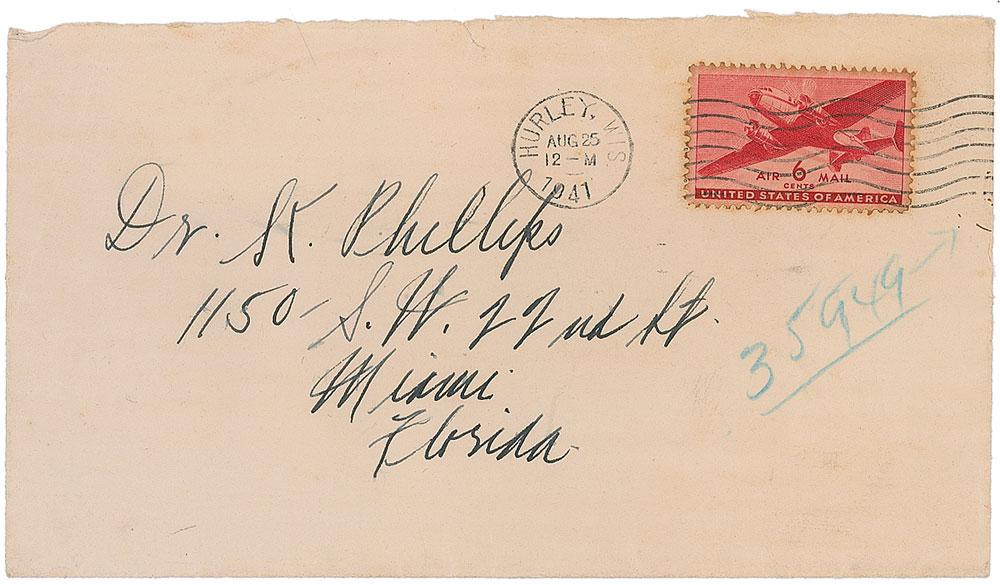 HURLEY, WIS.
AUG 25
12 - M
1941
AIR 6 MAIL
CENTS
UNITED STATES OF AMERICA
Dr. K. Phillips
1150 - S.W. 22nd St.
Miami
Florida
35949